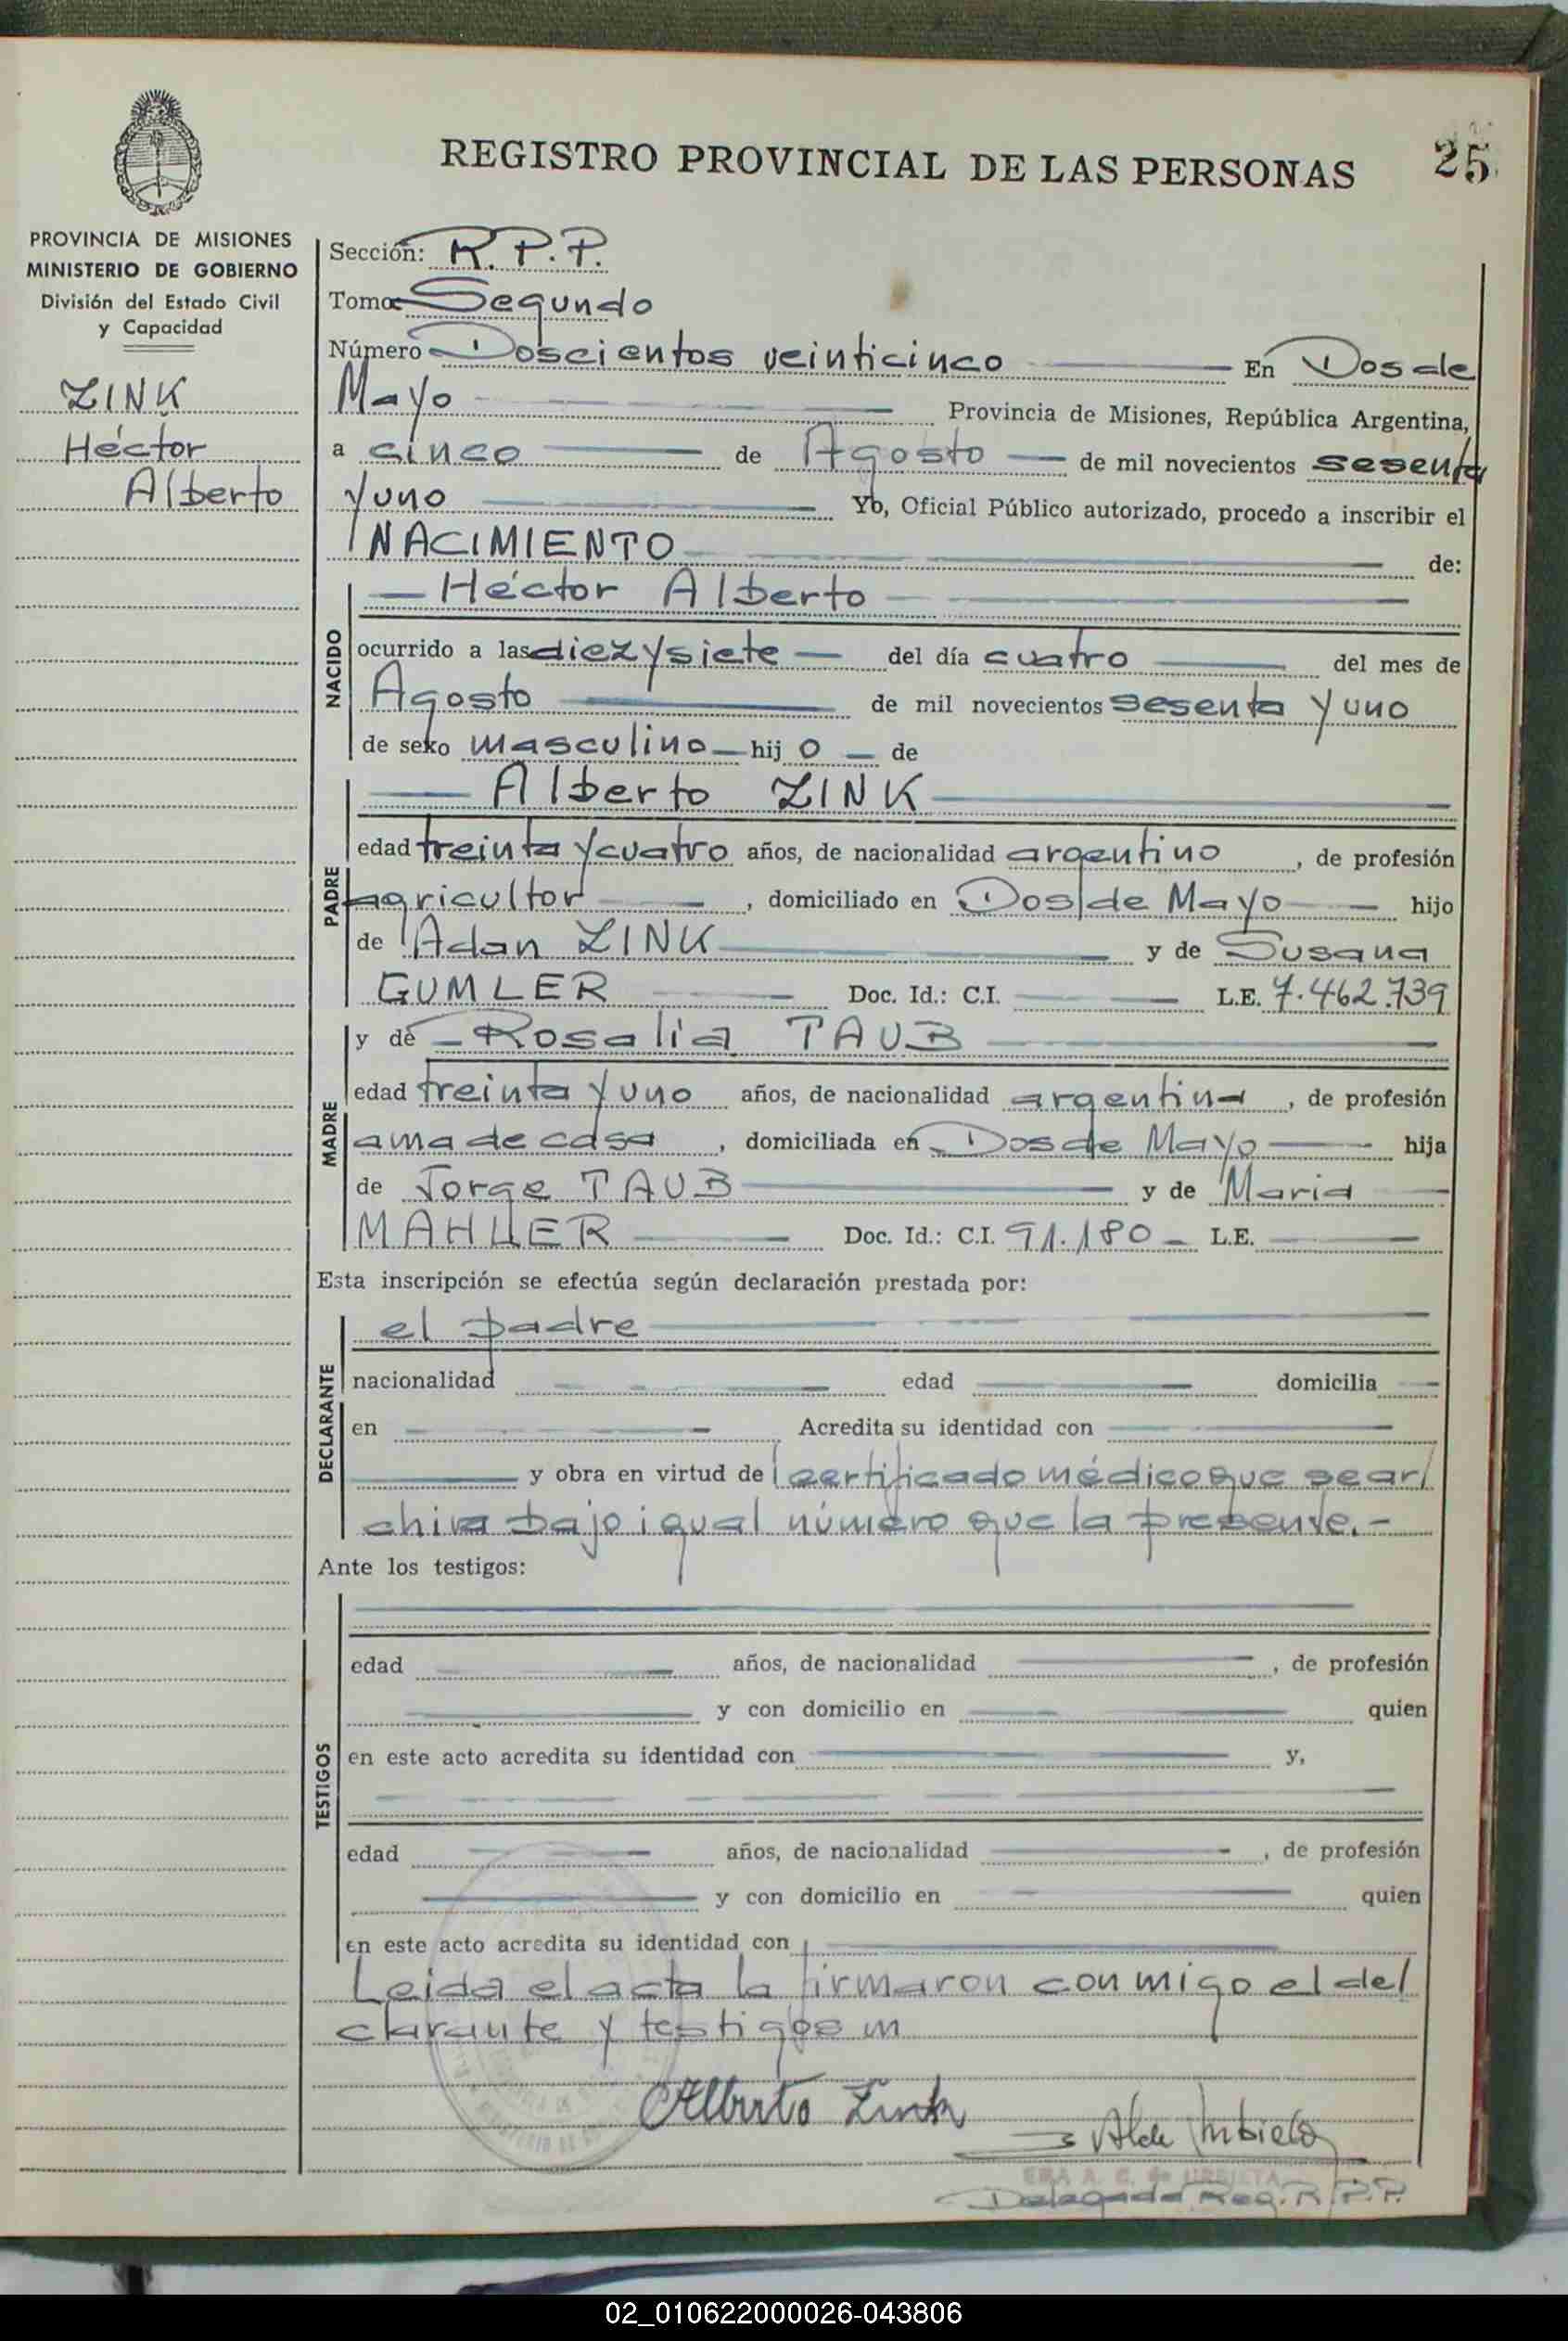 REGISTRO PROVINCIAL DE LAS PERSONAS
25
PROVINCIA DE MISIONES
MINISTERIO DE GOBIERNO
División del Estado Civil
y Capacidad
ZINK
Héctor
Alberto
Sección: R.P.P.
Tomo: Segundo
Número Doscientos veinticinco En Dos de
Mayo Provincia de Misiones, República Argentina,
a cinco de Agosto de mil novecientos sesenta
y uno Yo, Oficial Público autorizado, procedo a inscribir el
NACIMIENTO de:
NACIDO
Héctor Alberto
ocurrido a las diez y siete del día cuatro del mes de
Agosto de mil novecientos sesenta y uno
de sexo masculino hij o de
PADRE
Alberto ZINK
edad treinta y cuatro años, de nacionalidad argentino, de profesión
agricultor, domiciliado en Dos de Mayo hijo
de Adan ZINK y de Susana
GUMLER Doc. Id.: C.I. L.E. 7.462.739
MADRE
y de Rosalia TAUB
edad treinta y uno años, de nacionalidad argentina, de profesión
ama de casa, domiciliada en Dos de Mayo hija
de Jorge TAUB y de Maria
MAHLER Doc. Id.: C.I. 91.180 L.E.
Esta inscripción se efectúa según declaración prestada por:
DECLARANTE
el padre
nacionalidad edad domicilia
en Acredita su identidad con
y obra en virtud de certificado médico que se ar/
chiva bajo igual número que la presente.-
Ante los testigos:
TESTIGOS
edad años, de nacionalidad, de profesión
y con domicilio en quien
en este acto acredita su identidad con y,
edad años, de nacionalidad, de profesión
y con domicilio en quien
en este acto acredita su identidad con
Leida el acta la firmaron conmigo el de/
clarante y testigos
Alberto Zink
A. C. de URBIETA
Delegada Reg. R.P.P.
02_010622000026-043806